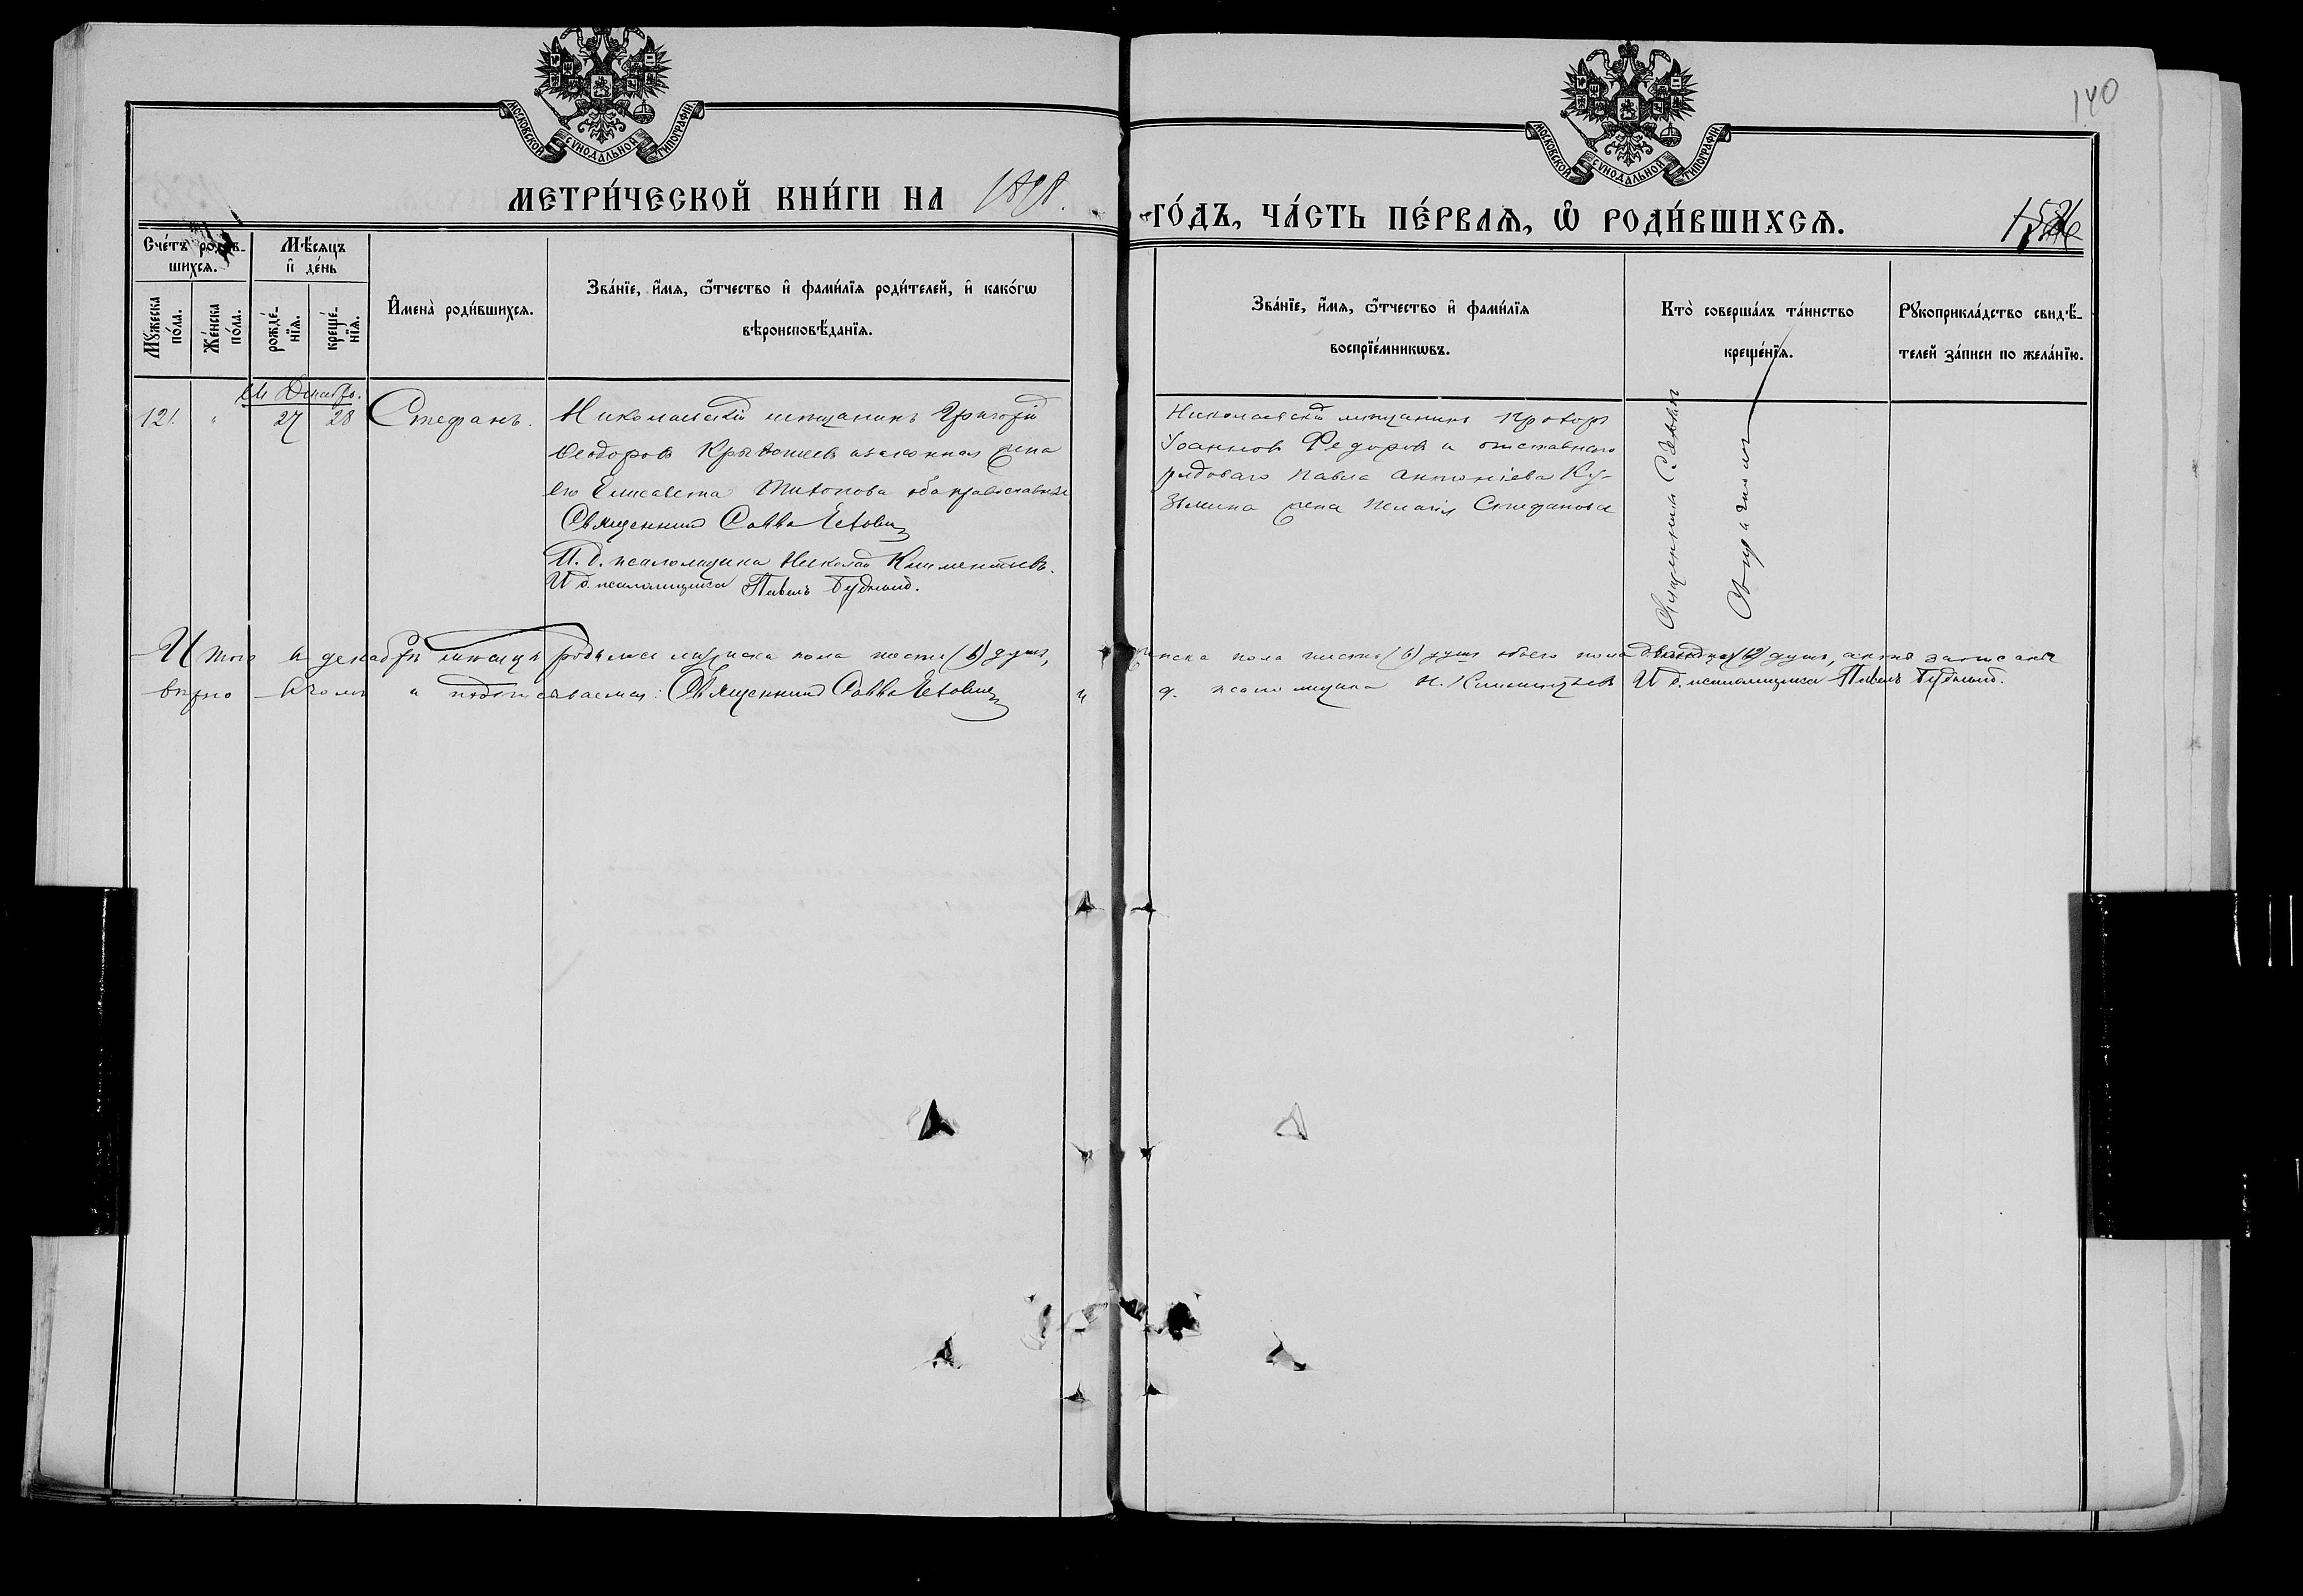 140
МОСКОВСКОЙ СѴНОДАЛЬНОЙ ТИПОГРАФІИ
МОСКОВСКОЙ СѴНОДАЛЬНОЙ ТИПОГРАФІИ
МЕТРИ́ЧЕСКОЙ КНИ́ГИ НА 1898.
ГО́ДЪ, ЧА́СТЬ ПЕ́РВАѦ, Ѽ РОДИ́ВШИХСѦ.
Сче́тъ роди́в-
шихсѧ.
Мꙋ́жеска по́ла.
Же́нска по́ла.
Мѣ́сяцъ
и҆ де́нь
рожде́-
нїѧ.
креще́-
нїѧ.
И҆мена̀ роди́вшихсѧ.
Зва́нїе, и҆́мѧ, ѻ҆́тчество и҆ фами́лїѧ роди́телей, и҆ како́гѡ
вѣроисповѣ́данїѧ.
Зва́нїе, и҆́мѧ, ѻ҆́тчество и҆ фами́лїѧ
воспрїе́мникѡвъ.
Кто̀ соверша́лъ та́инство
креще́нїѧ.
Рꙋкоприкла́дство свидѣ́-
телей за́писи по жела́нїю.
М Декабрь.
121. " 27 28 Стефанъ.
Николаевскій мѣщанинъ Григорій
Ѳеодоровъ и законная жена
его Елисавета Тихонова оба православные
Священникъ Савва
И. д. псаломщика Николай Климентьевъ.
И д. псаломщика Павелъ Будный.
Николаевскій мѣщанинъ Прохоръ
Іоанновъ Федоровъ и отставного
рядоваго Павла Антоніева Ку-
зьмина жена Пелагія Стефанова
Священникъ Савва
Итого въ декабрѣ мѣсяцѣ родилось мужеска пола шесть (6) душъ,
женска пола шесть (6) душъ обоего пола двѣнадцать (12) душъ, акты записаны
вѣрно въ чемъ и подписываемся: Священникъ Савва
и д. псаломщика Н. Климентьевъ И д. псаломщика Павелъ Будный.